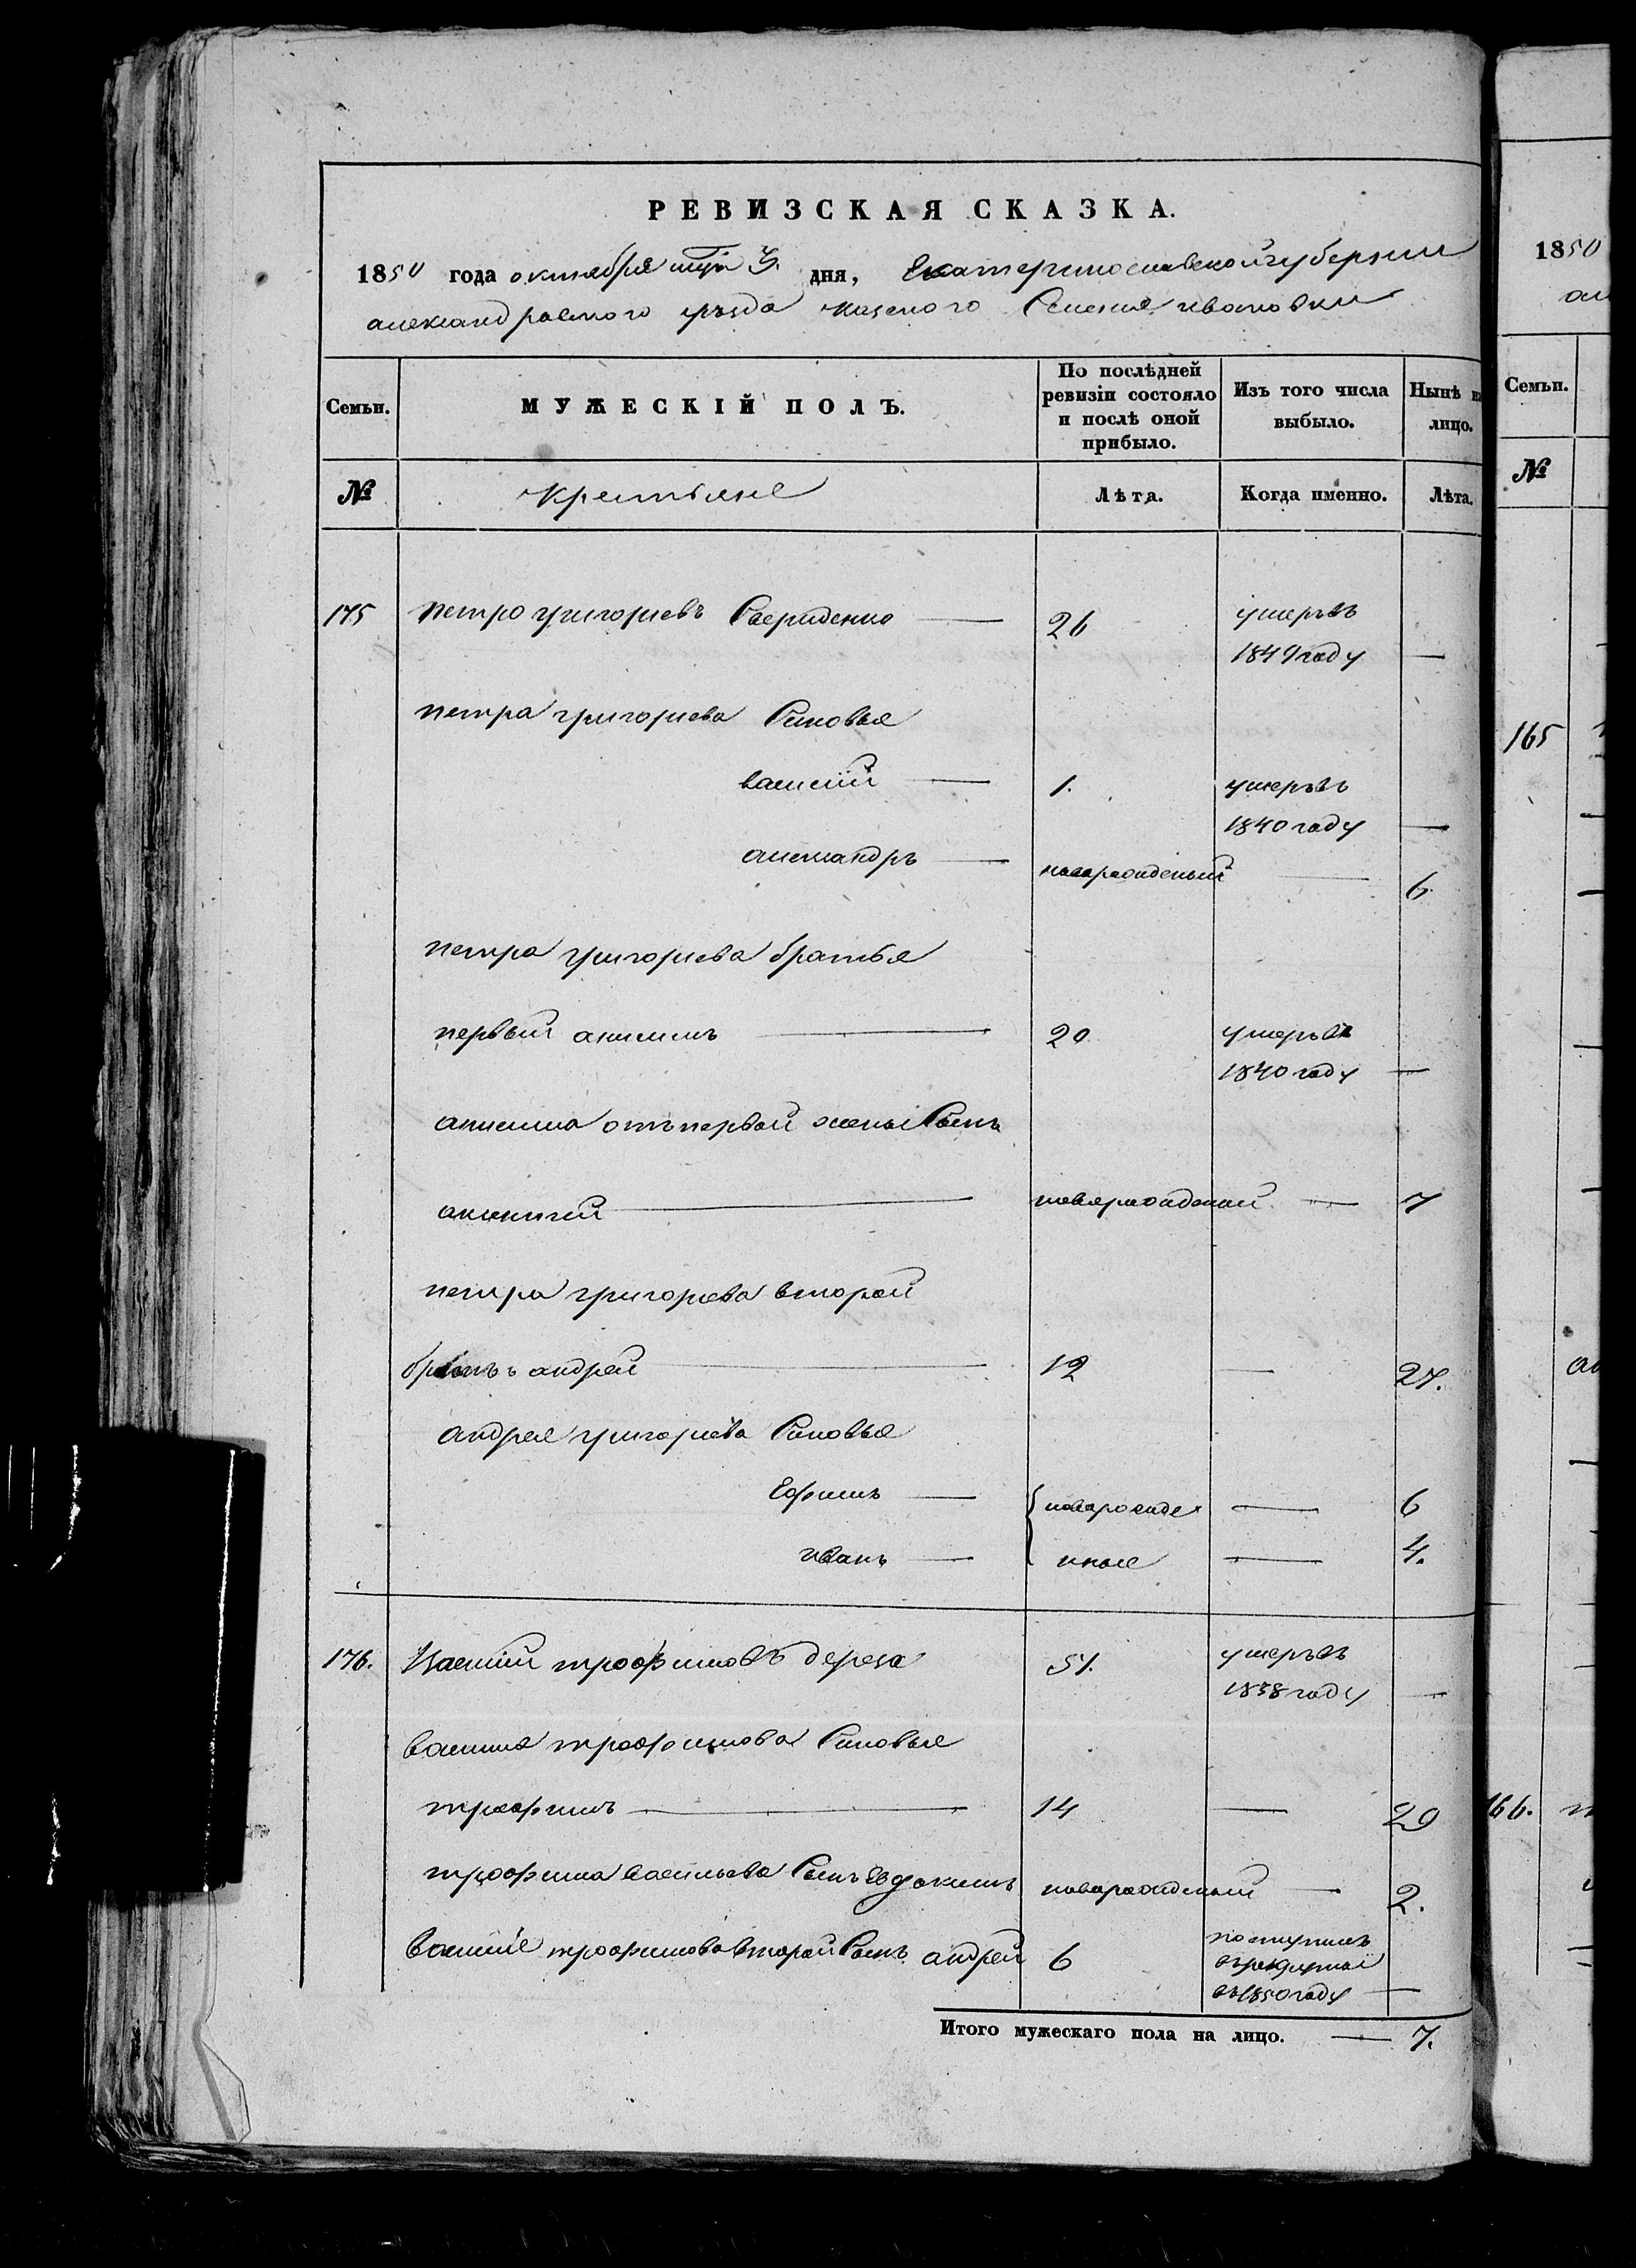 РЕВИЗСКАЯ СКАЗКА.
1850 года октября дня, Екатеринославской губернии
александравского уезда казеного Селения ивановки
Семьи. МУЖЕСКІЙ ПОЛЪ. По послѣдней ревизіи состояло и послѣ оной прибыло. Изъ того числа выбыло. Нынѣ на лицо.
№ крестьяне Лѣта. Когда именно. Лѣта.
175 петро григориевъ Свериденко — 26 умеръ въ
1849 году —
петра григориева Синовья
василий — 1. умеръ въ
1840 году —
александръ — новарожденый — 6
петра григориева братья
первый анисимъ — 20 умеръ въ
1840 году —
анисима отъ первой жены Сынъ
— новарожденый — 7
петра григориева второй
братъ андрей — 12 — 27.
андрея григориева Синовья
Ефимъ — новарожде — 6
иванъ — ныое — 4.
176. Василий трофимовъ береза 51. умеръ въ
1838 году —
василия трофимова Синовья
трофимъ — 14 — 29
трофима васильева Сынъ Евдокимъ новарожденый — 2.
василия трофимова второй Сынъ андрей 6 поступилъ
въ рекруты
въ 1850 году —
Итого мужескаго пола на лицо. — 7.
1850
Семьи.
№
165
166.